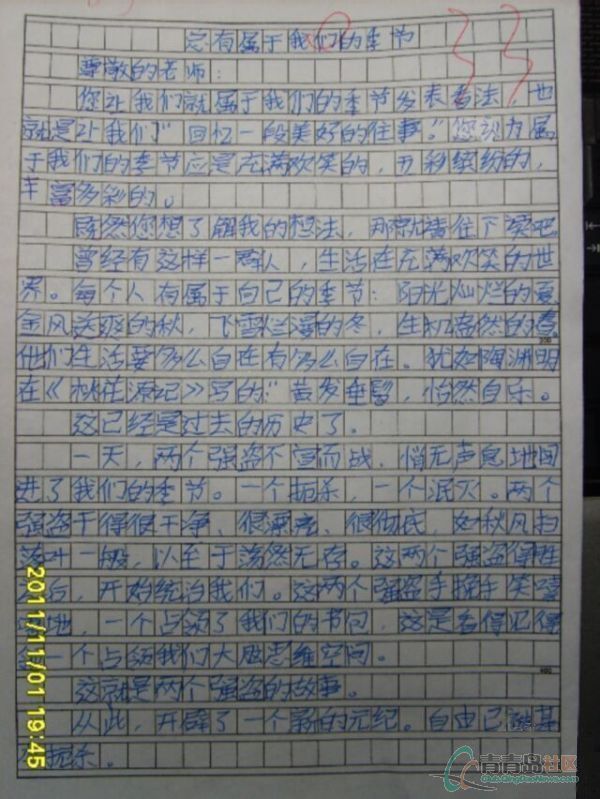 总有属于我们的季节
尊敬的老师：
您让我们就属于我们的季节发表看法，也
就是让我们"回忆一段美好的往事。"您认为属
于我们的季节应是充满欢笑的，五彩缤纷的，
丰富多彩的。
既然您想了解我的想法，那就请往下读吧
曾经有这样一群人，生活在充满欢笑的世
界。每个人有属于自己的季节：阳光灿烂的夏
金风送爽的秋，飞雪烂漫的冬，生机盎然的春
他们生活要多么自在有多么自在。犹如陶渊明
在《桃花源记》写的："黄发垂髫，怡然自乐。
这已经是过去的历史了。
一天，两个强盗不宣而战，悄无声息地闯
进了我们的季节。一个扼杀，一个泯灭。两个
强盗干得很干净、很漂亮、很彻底，如秋风扫
落叶一般，以至于荡然无存。这两个强盗得胜
之后，开始统治我们。这两个强盗手挽手笑嘻
嘻地，一个占领了我们的书包，这是看得见得
一个占领我们大脑思维空间。
这就是两个强盗的故事。
从此，开辟了一个新的元纪。自由已被某
扼杀。
200
400
2011/11/01 19:45
青青岛社区
Club.QingDaoNews.com